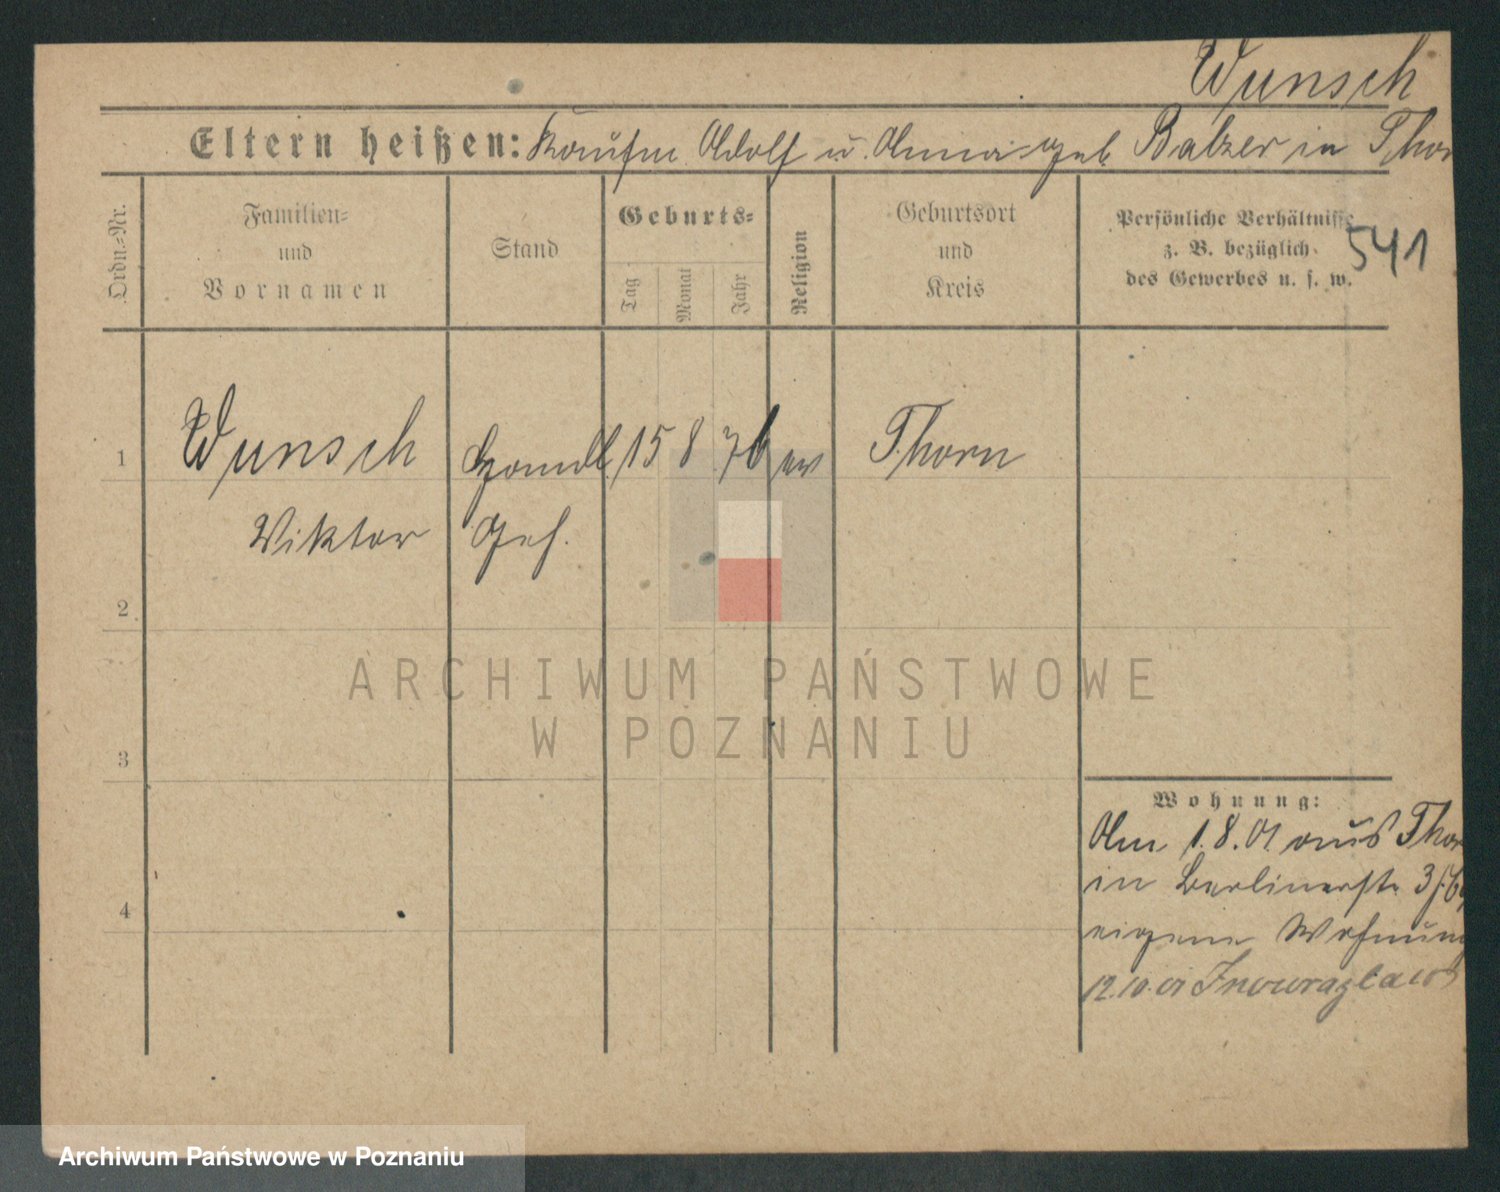 Wunsch
Eltern heißen: Kaufm. Adolf u. Anna geb. Balzer in Thor
Ordn.-Nr.
Familien-
und
Vornamen
Stand
Geburts-
Tag
Monat
Jahr
Religion
Geburtsort
und
Kreis
Persönliche Verhältnisse
z. B. bezüglich
des Gewerbes u. s. w.
541
1 Wunsch Handl. 15 8 76 ev Thorn
Viktor Geh.
2
3
4
Wohnung:
Am 1.8.01 aus Thor
in Berlinerstr. 3
eigene Wohnung
12.10.01 Inowrazlaw
ARCHIWUM PAŃSTWOWE
W POZNANIU
Archiwum Państwowe w Poznaniu